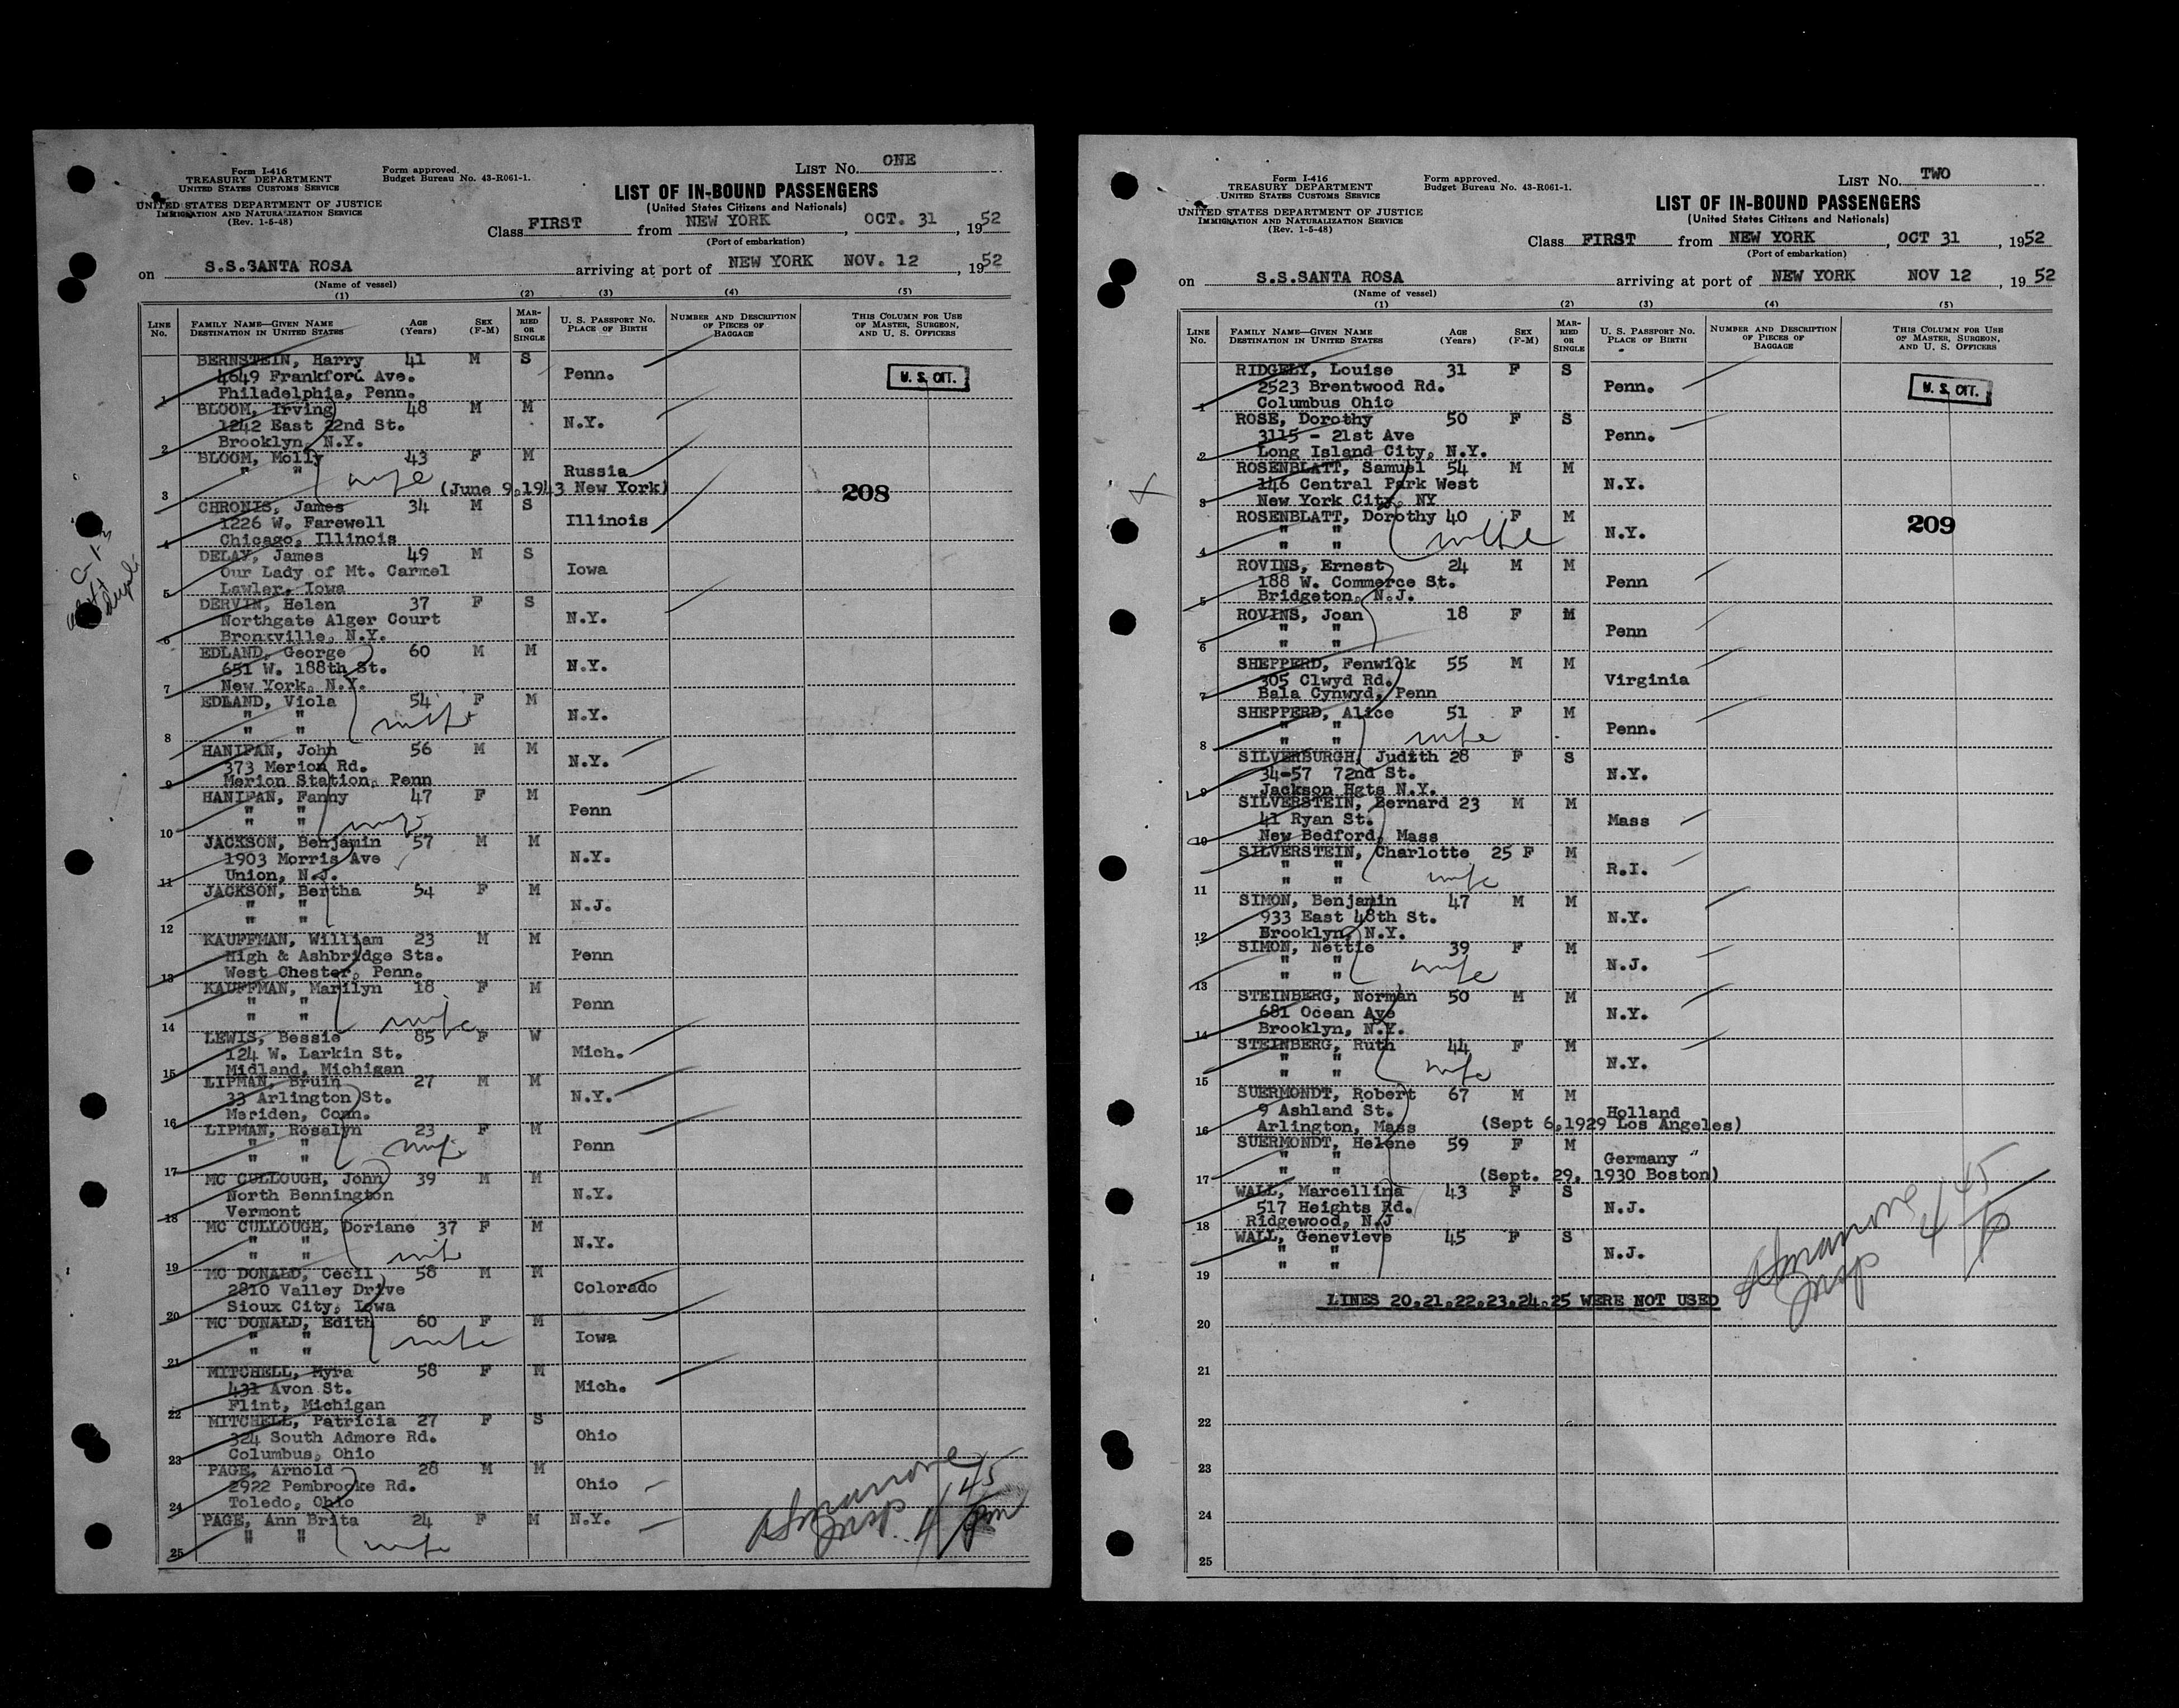 Form I-416
TREASURY DEPARTMENT
UNITED STATES CUSTOMS SERVICE
UNITED STATES DEPARTMENT OF JUSTICE
IMMIGRATION AND NATURALIZATION SERVICE
(Rev. 1-5-48)
Form approved.
Budget Bureau No. 43-R061-1.
LIST NO. ONE
LIST OF IN-BOUND PASSENGERS
(United States Citizens and Nationals)
Class FIRST from NEW YORK, OCT. 31, 1952
(Port of embarkation)
on S.S.SANTA ROSA arriving at port of NEW YORK NOV. 12, 1952
(Name of vessel)
(1) (2) (3) (4) (5)
LINE NO. FAMILY NAME—GIVEN NAME DESTINATION IN UNITED STATES AGE (Years) SEX (F-M) MARRIED OR SINGLE U. S. PASSPORT NO. PLACE OF BIRTH NUMBER AND DESCRIPTION OF PIECES OF BAGGAGE THIS COLUMN FOR USE OF MASTER, SURGEON, AND U. S. OFFICERS
BERNSTEIN, Harry 41 M S
4649 Frankford Ave. Penn. U. S. CIT.
1 Philadelphia, Penn.
BLOOM, Irving 48 M M
1242 East 22nd St. N.Y.
2 Brooklyn, N.Y.
BLOOM, Molly 43 F M
" " wife Russia
3 (June 9,1943 New York) 208
CHRONIS, James 34 M S
1226 W. Farewell Illinois
4 Chicago, Illinois
DELAY, James 49 M S
Our Lady of Mt. Carmel Iowa
5 Lawler, Iowa
DERVIN, Helen 37 F S
Northgate Alger Court N.Y.
6 Bronxville, N.Y.
EDLAND, George 60 M M
651 W. 188th St. N.Y.
7 New York, N.Y.
EDLAND, Viola 54 F M
" " wife N.Y.
8 " "
HANIPAN, John 56 M M
373 Merion Rd. N.Y.
9 Merion Station, Penn
HANIPAN, Fanny 47 F M
" " Penn
10 " " wife
JACKSON, Benjamin 57 M M
1903 Morris Ave N.Y.
11 Union, N.J.
JACKSON, Bertha 54 F M
" " N.J.
12 " "
KAUFFMAN, William 23 M M
High & Ashbridge Sts. Penn
13 West Chester, Penn.
KAUFFMAN, Marilyn 18 F M
" " Penn
14 " " wife
LEWIS, Bessie 85 F W
124 W. Larkin St. Mich.
15 Midland, Michigan
LIPMAN, Bruin 27 M M
33 Arlington St. N.Y.
16 Meriden, Conn.
LIPMAN, Rosalyn 23 F M
" " wife Penn
17 " "
MC CULLOUGH, John 39 M M
North Bennington N.Y.
18 Vermont
MC CULLOUGH, Doriane 37 F M
" " N.Y.
19 " " wife
MC DONALD, Cecil 58 M M
2810 Valley Drive Colorado
20 Sioux City, Iowa
MC DONALD, Edith 60 F M
" " wife Iowa
21 " "
MITCHELL, Myra 58 F M
431 Avon St. Mich.
22 Flint, Michigan
MITCHELL, Patricia 27 F S
324 South Admore Rd. Ohio
23 Columbus, Ohio
PAGE, Arnold 28 M M
2922 Pembrooke Rd. Ohio
24 Toledo, Ohio
PAGE, Ann Brita 24 F M N.Y.
" " wife
25
Insp. 4 45 pm
Form I-416
TREASURY DEPARTMENT
UNITED STATES CUSTOMS SERVICE
UNITED STATES DEPARTMENT OF JUSTICE
IMMIGRATION AND NATURALIZATION SERVICE
(Rev. 1-5-48)
Form approved.
Budget Bureau No. 43-R061-1.
LIST NO. TWO
LIST OF IN-BOUND PASSENGERS
(United States Citizens and Nationals)
Class FIRST from NEW YORK, OCT 31, 1952
(Port of embarkation)
on S.S.SANTA ROSA arriving at port of NEW YORK NOV 12, 1952
(Name of vessel)
(1) (2) (3) (4) (5)
LINE NO. FAMILY NAME—GIVEN NAME DESTINATION IN UNITED STATES AGE (Years) SEX (F-M) MARRIED OR SINGLE U. S. PASSPORT NO. PLACE OF BIRTH NUMBER AND DESCRIPTION OF PIECES OF BAGGAGE THIS COLUMN FOR USE OF MASTER, SURGEON, AND U. S. OFFICERS
RIDGELY, Louise 31 F S
2523 Brentwood Rd. Penn. U. S. CIT.
1 Columbus Ohio
ROSE, Dorothy 50 F S
3115 - 21st Ave Penn.
2 Long Island City, N.Y.
ROSENBLATT, Samuel 54 M M
146 Central Park West N.Y.
3 New York City, NY
ROSENBLATT, Dorothy 40 F M
" " N.Y. 209
4 " " wife
ROVINS, Ernest 24 M M
188 W. Commerce St. Penn
5 Bridgeton, N.J.
ROVINS, Joan 18 F M
" " Penn
6 " "
SHEPPERD, Fenwick 55 M M
305 Clwyd Rd. Virginia
7 Bala Cynwyd, Penn
SHEPPERD, Alice 51 F M
" " Penn.
8 " " wife
SILVERBURGH, Judith 28 F S
34-57 72nd St. N.Y.
9 Jackson Hgts N.Y.
SILVERSTEIN, Bernard 23 M M
41 Ryan St. Mass
10 New Bedford, Mass
SILVERSTEIN, Charlotte 25 F M
" " R.I.
11 " " wife
SIMON, Benjamin 47 M M
933 East 48th St. N.Y.
12 Brooklyn, N.Y.
SIMON, Nettie 39 F M
" " N.J.
13 " " wife
STEINBERG, Norman 50 M M
681 Ocean Ave N.Y.
14 Brooklyn, N.Y.
STEINBERG, Ruth 44 F M
" " N.Y.
15 " " wife
SUERMONDT, Robert 67 M M
9 Ashland St. Holland
16 Arlington, Mass (Sept 6,1929 Los Angeles)
SUERMONDT, Helene 59 F M
" " Germany
17 " " (Sept. 29, 1930 Boston)
WALL, Marcellina 43 F S
517 Heights Rd. N.J.
18 Ridgewood, N.J
WALL, Genevieve 45 F S
" " N.J.
19 " "
Insp 4 45 p
LINES 20,21,22,23,24,25 WERE NOT USED
20
21
22
23
24
25